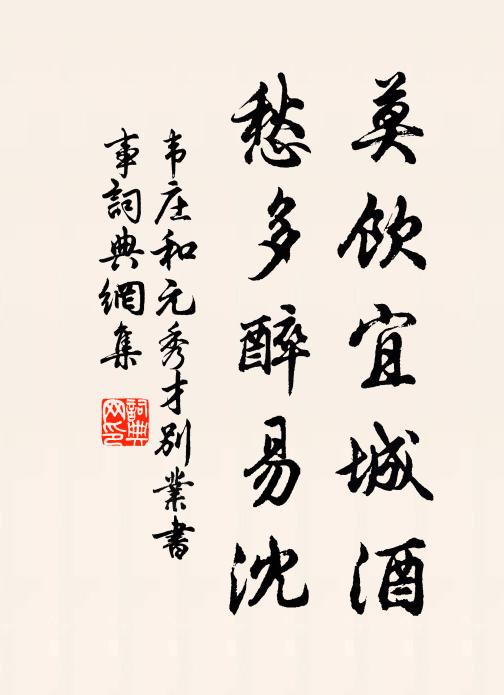 莫飲宜城酒
愁多醉易沈
韦庄和元秀才別業書
事詞典網集
詞典
网印